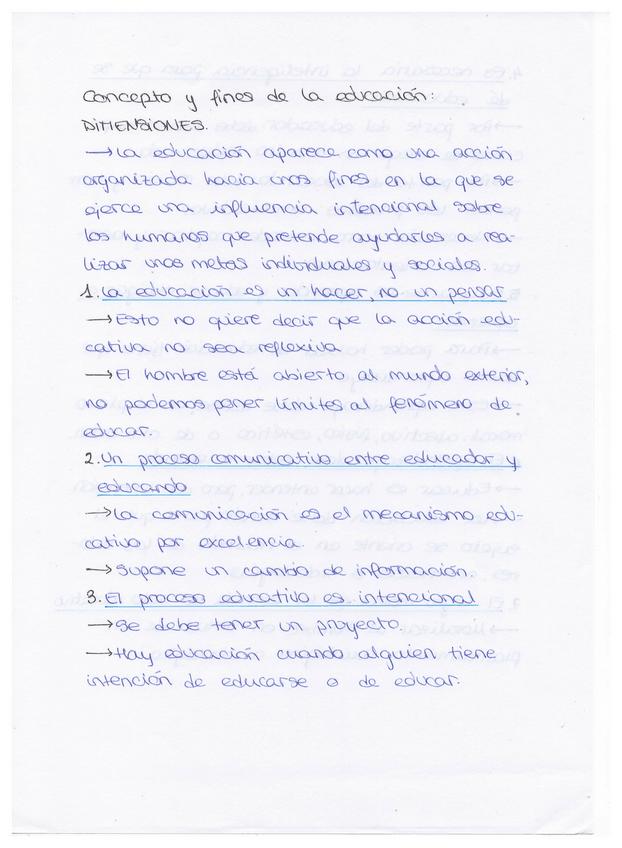 Concepto y fines de la educación:
DIMENSIONES.
→ La educación aparece como una acción
organizada hacia unos fines en la que se
ejerce una influencia intencional sobre
los humanos que pretende ayudarles a rea-
lizar unas metas individuales y sociales.
1. La educación es un hacer, no un pensar
→ Esto no quiere decir que la acción edu-
cativa no sea reflexiva
→ El hombre está abierto al mundo exterior,
no podemos poner límites al fenómeno de
educar.
2. Un proceso comunicativo entre educador y
educando
→ La comunicación es el mecanismo edu-
cativo por excelencia
→ Supone un cambio de información.
3. El proceso educativo es intencional
→ Se debe tener un proyecto.
→ Hay educación cuando alguien tiene
intención de educarse o de educar.